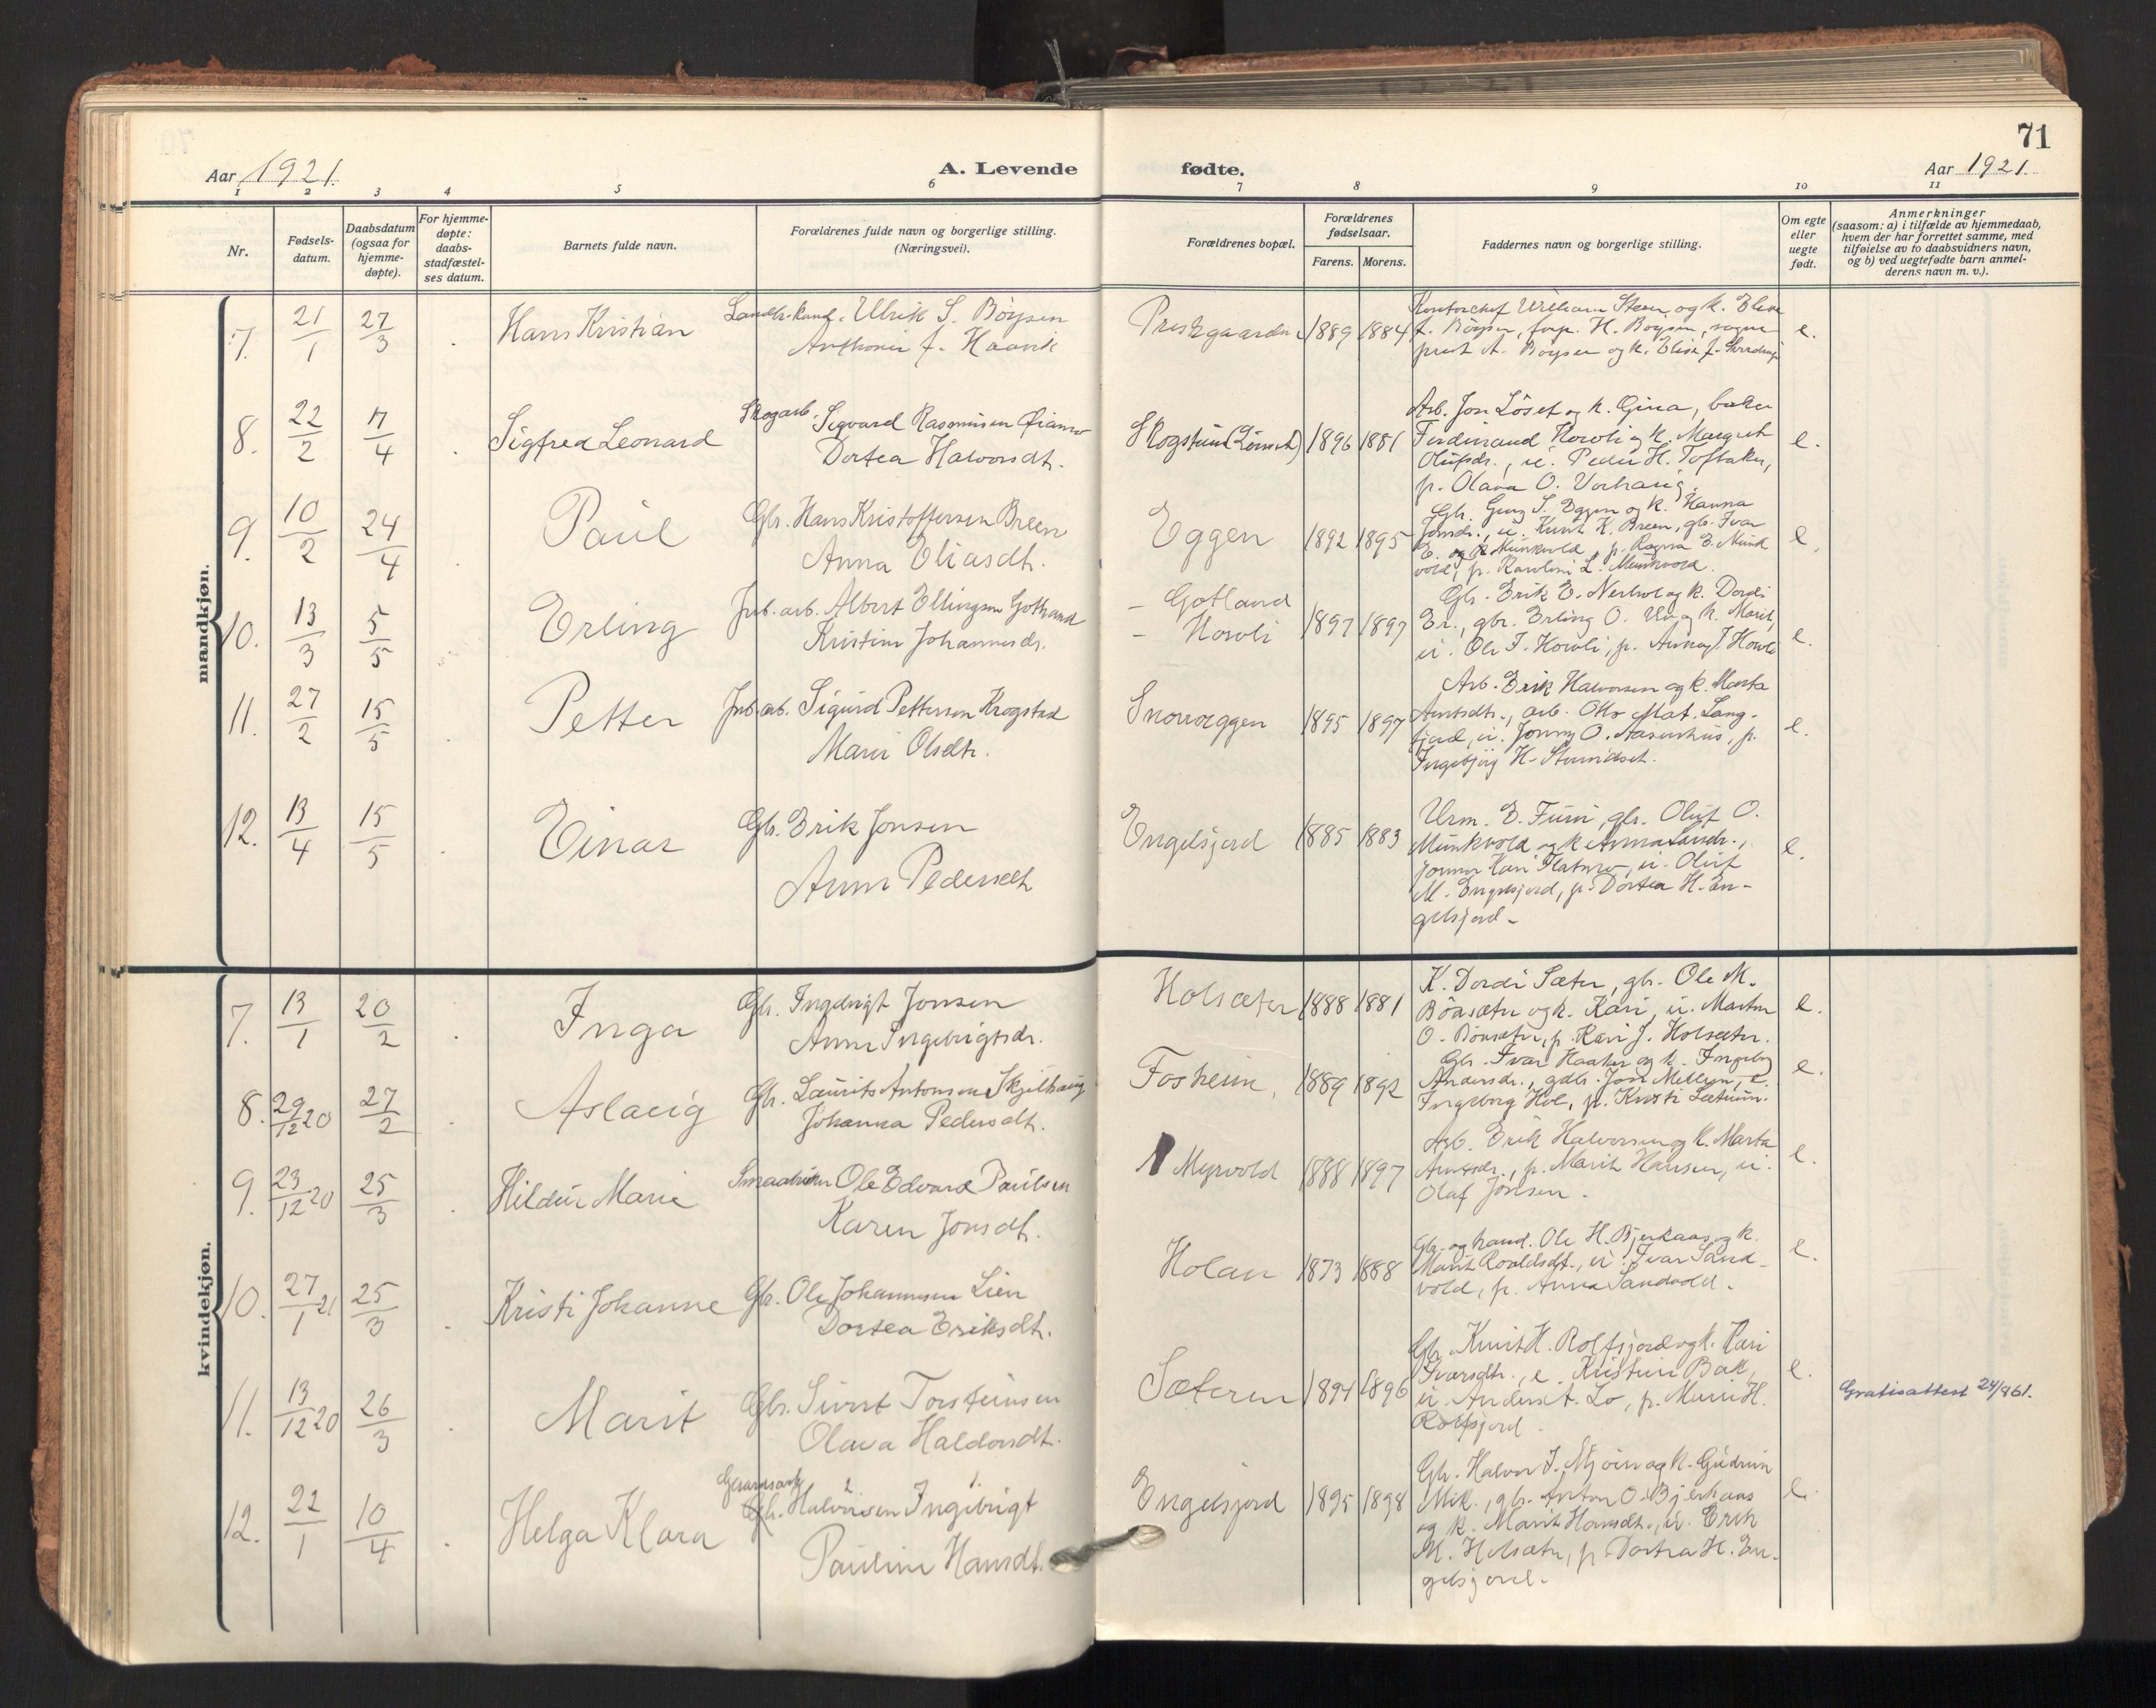 71
Aar 1921.
A. Levende
fødte.
Aar 1921.
1 2 3 4 5 6 7 8 9 10 11
Nr.
Fødsels-
datum.
Daabsdatum
(ogsaa for
hjemme-
døpte).
For hjemme-
døpte:
daabs-
stadfæstel-
ses datum.
Barnets fulde navn.
Forældrenes fulde navn og borgerlige stilling.
(Næringsvei).
Forældrenes bopæl.
Forældrenes
fødselsaar.
Farens. Morens.
Faddernes navn og borgerlige stilling.
Om egte
eller
uegte
født.
Anmerkninger
(saasom: a) i tilfælde av hjemmedaab,
hvem der har forrettet samme, med
tilføielse av to daabsvidners navn,
og b) ved uegtefødte barn anmel-
derens navn m. v.).
mandkjøn.
7. 21/1 27/3 Hans Kristian
Landbr. kand. Ulrik S. Böysen
f. Haavik
1889 1884
Kontorchef William Steen og k. Elise
f. Böysen, H. Boysen, sogne
prest A. Böysen og k. Elise f.
e.
8. 22/2 17/4 Sigfred Leonard
Skogarb. Sigvard Rasmussen
Dortea Halvorsdt.
1896 1881
Arb. Jon Löset og k. Gina, baker
Ferdinand Horvli og k. Margret
Olufsdr., u. Peder H. Toftaker,
p. Olava O. Vorhaug.
e.
9. 10/2 24/4 Paul
Gbr. Hans Kristoffersen Breen
Anna Eliasdt.
Eggen
1892 1895
Gbr. S. Eggen og k. Hanna
Jonsdr., u. Knut K. Breen, gbr. Ivar
E. og k. Munkvold, p. Ragna E. Munk
vold, p. Karoline L. Munkvold.
e.
10. 13/3 5/5 Erling
Jnb. arb. Albert Ellingsen Gotland
Kristine Johannesdr.
- Gotland
- Horvli
1897 1897
Gbr. Erik E. Nerhol og k. Dordi
Er., gbr. Erling O. og k. Marit,
u. Ole J. Horvli, p. Anna J. Horvli
e.
11. 27/2 15/5 Petter
Jnb. arb. Sigurd Pettersen Krogstad
Marie Olsdtr.
Snoweggen
1895 1897
Arb. Erik Halvorsen og k. Marta
Arntsdtr., arb. Otto Mat. Lang-
fjord, u. Jonny O. Aasenhus, p.
Ingebjörg H.
e.
12. 13/4 15/5 Einar
Gb. Erik Jonsen
Anne Pedersdt
Engelsjord
1885 1883
Urm. E. Furu, gbr. Oluf O.
Munkvold og k.
jormor Kari Flatmo, u. Oluf
M. Engelsjord, p. Dortea H. En-
gelsjord-
e.
kvindekjøn.
7. 13/1 20/2 Inga
Gbr. Ingebrigt Jonsen
Anne Ingebrigtsdr.
Holsæter
1888 1881
K. Dordi Sæter, gbr. Ole M.
Bönsæter og k. Kari, u. Marten
O. Bönsæter, p. Kari J. Holsæter.
e.
8. 29/12 20 27/2 Aslaug
Gbr. Laurits Antonsen Skjelhaug
Johanna Pedersdt.
Fosheim,
1889 1892
Gbr. Ivar Haaker og k. Ingebor
Andersdr., gdbr. Jon Mellem, e.
Ingeborg Hol, p. Kristi Sæteren.
e.
9. 23/12 20 25/3 Hildur Marie
Smaabruker Ole Edvard Paulsen
Karen Jonsdt.
Myrvold
1888 1897
Arb. Erik Halvorsen og k. Marta
Arntsdr., p. Marit Hansen, u.
Olaf Jonsen.
e.
10. 27/1 21 25/3 Kristi Johanne
Gbr. Ole Johannesen Lien
Dortea Eriksdt.
Holan
1873 1888
Gbr. og hand. Ole H. Bjerkaas og k.
Marit Roaldsdt., u. Ivar Sand-
vold, p. Anna Sandvold.
e.
11. 13/12 20 26/3 Marit
Gbr. Sivert Torsteinsen
Olava Haldorsdt.
Sæteren
1894 1896
Gbr. Knut H. Rolfsjord og k. Kari
Ivarsdtr., e. Kristine Bak,
u. Anders A. Lo, p. Marie H.
Rolfsjord.
e.
Gratisattest 24/8 61.
12. 22/1 10/4 Helga Klara
Gbr. Halvorsen Ingebrigt
2 1.
Pauline Hansdt.
Engelsjord
1895 1898
Gbr. Halvor J. Mjöen og k. Gudrun
Mik., gbr. Anton O. Bjerkaas
og k. Marit Hansdt., u. Erik
M. Holsæter, p. Dortea H. En-
gelsjord.
e.